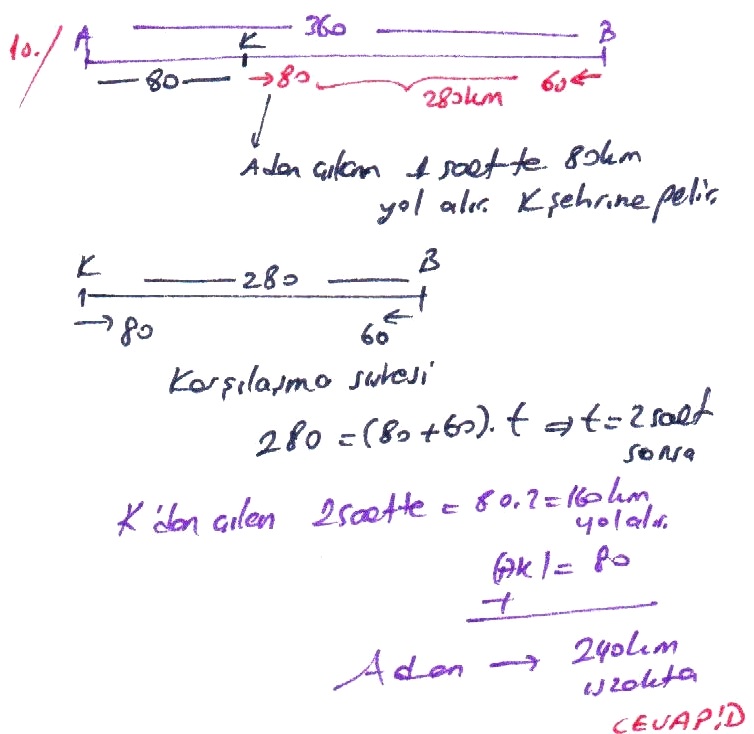 10./ A 360 B
K
80 →80 280km 60←
A dan çıkan 1 saatte 80km
yol alır. K şehrine gelir.
K 280 B
→80 60←
Karşılaşma süresi
280 = (80+60). t ⇒ t = 2 saat
sonra
K'dan çıkan 2 saatte = 80.2 = 160 km
yol alır.
|AK| = 80
+
A dan → 240km
uzakta
CEVAP: D